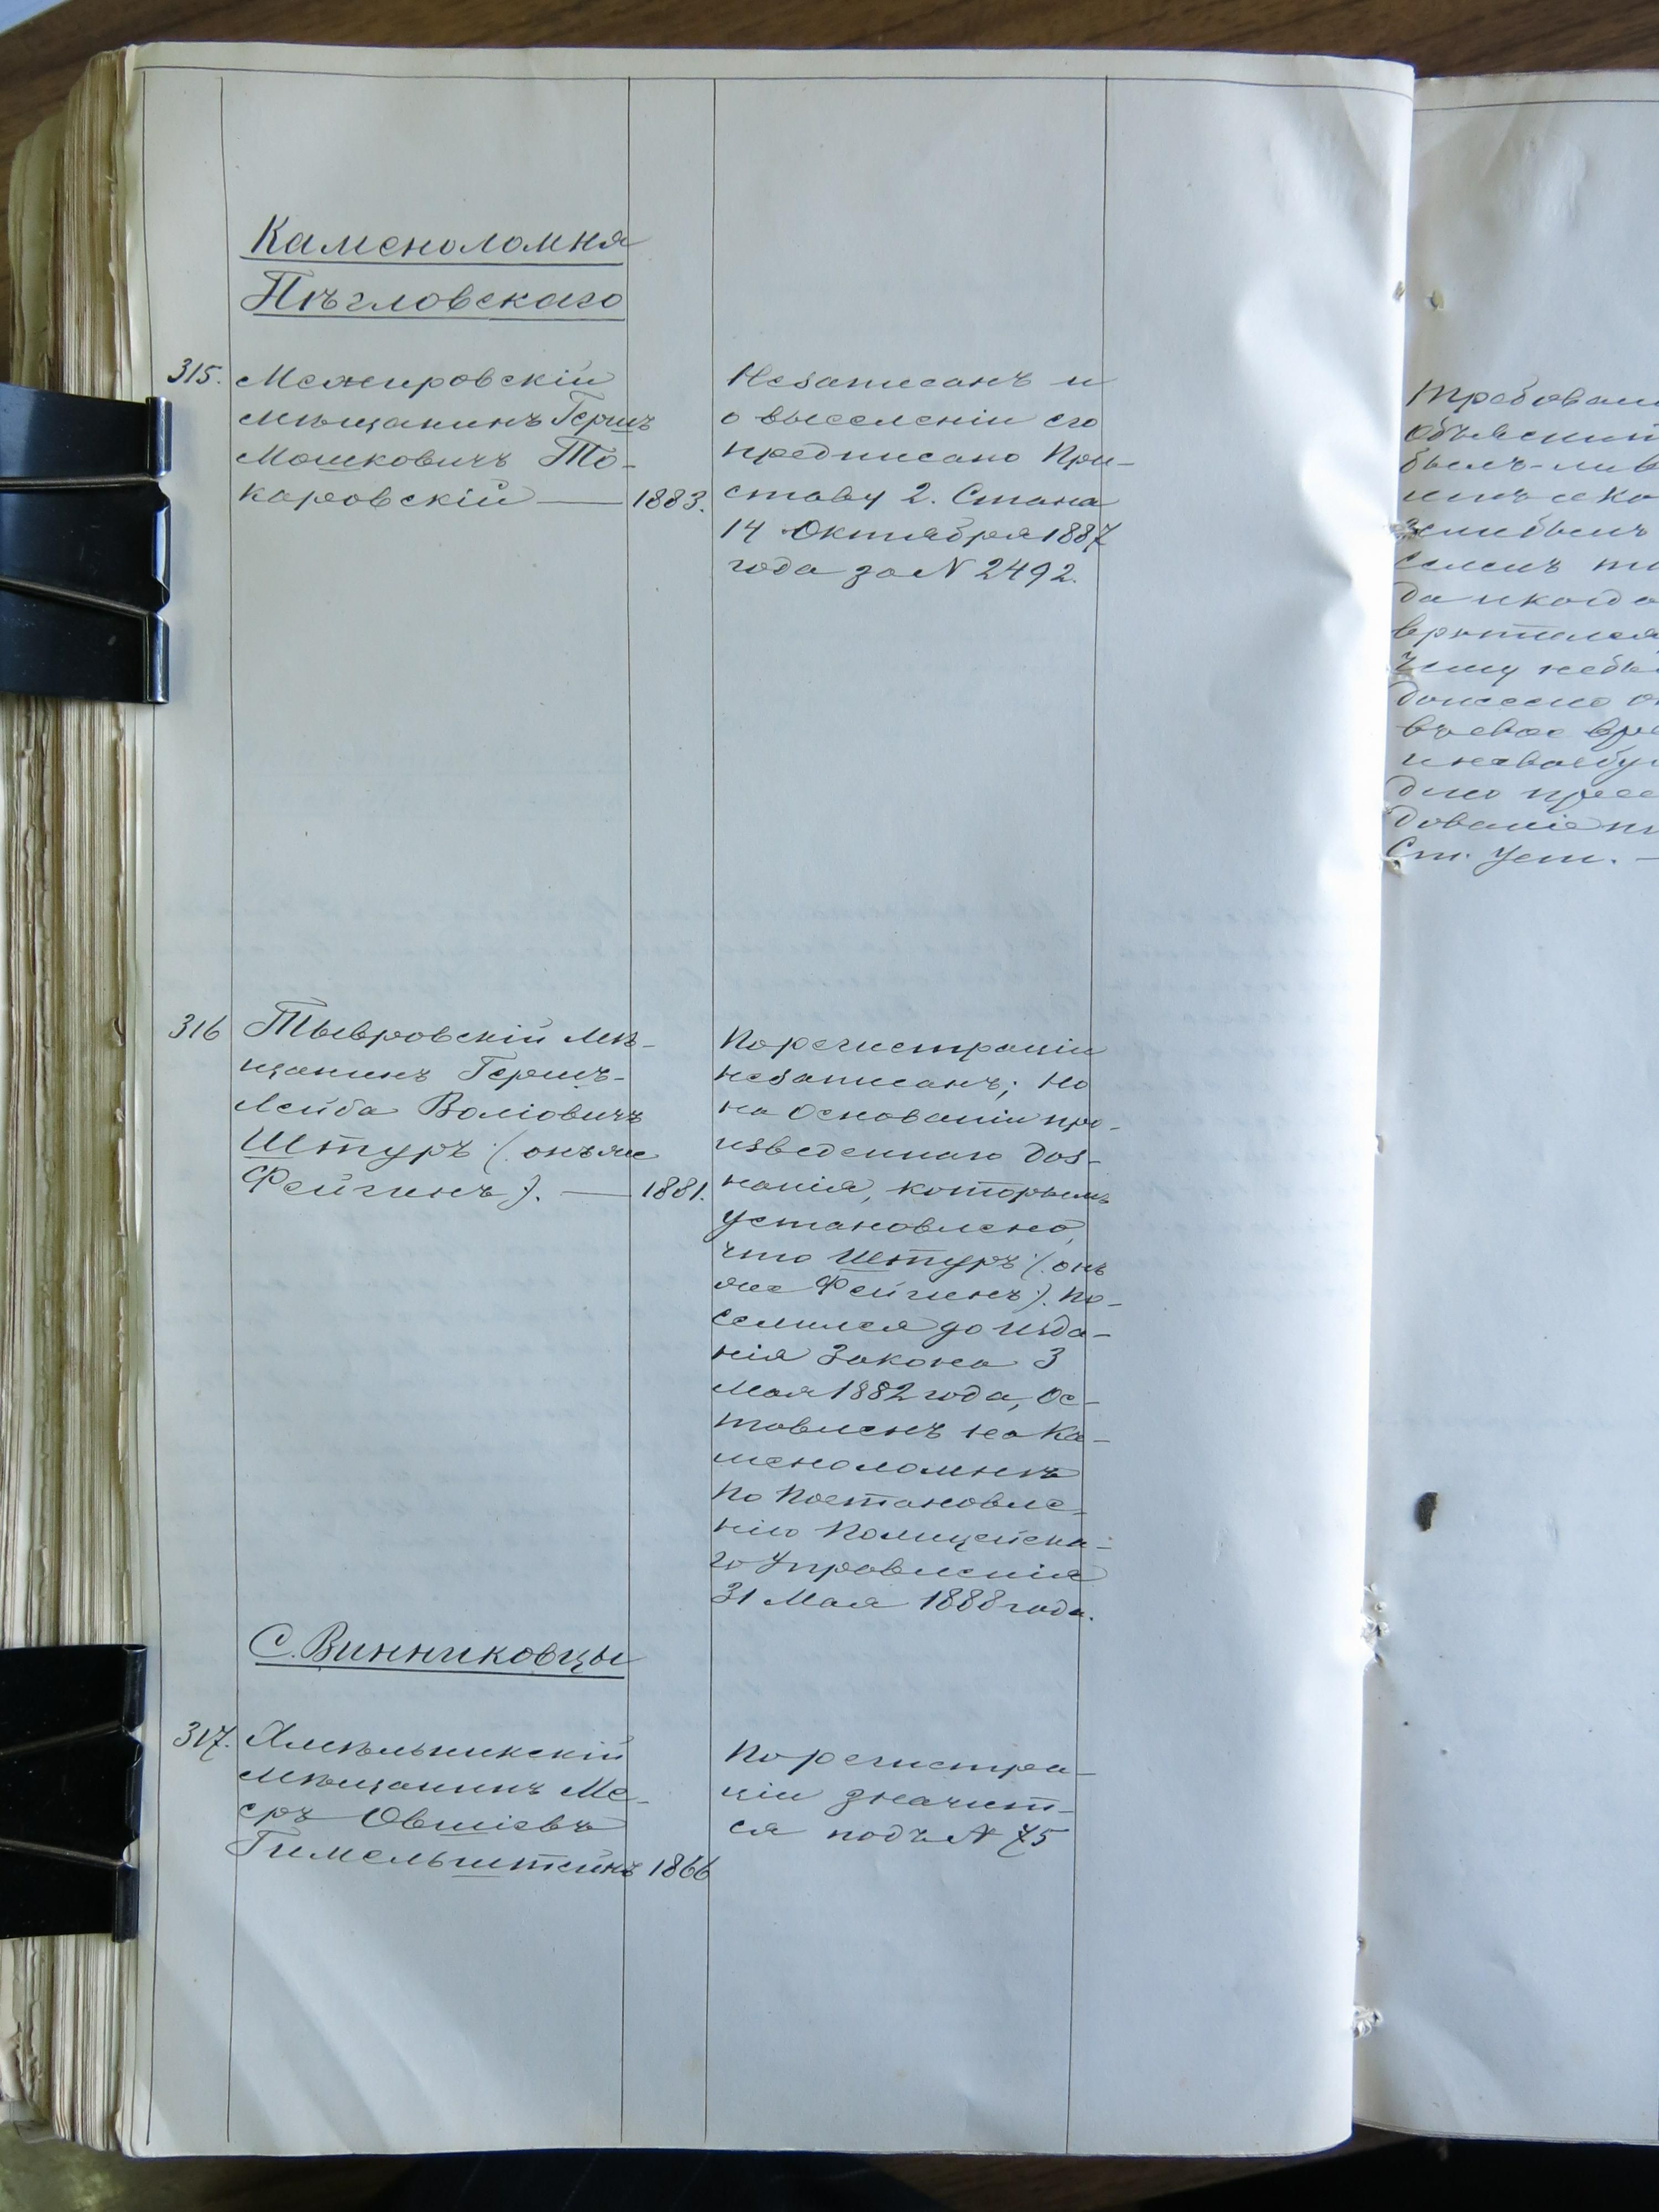 Каменоломня
Пѣгловскаго
315. Межировскій
мѣщанинъ Гершъ
Мошковичъ То-
каровскій — 1883.
Незаписанъ и
о выселеніи его
предписано При-
ставу 2. Стана
14 Октября 1887
года за N 2492.
316 Тывровскій мѣ-
щанинъ Гершъ-
Лейба Воліовичъ
Штуръ (онъ же
Фейгинъ). — 1881.
По регистраціи
незаписанъ; но
на основаніи про-
изведеннаго доз-
нанія, которымъ
установлено,
что Штуръ (онъ
же Фейгинъ). по-
селился до изда-
нія Закона 3
Мая 1882 года, ос-
тавленъ на Ка-
меноломнѣ
по Постановле-
нію Полицейска-
го Управленія
31 Мая 1888 года.
С. Винниковцы
317. Хмѣльникскій
мѣщанинъ Ме-
еръ Овшіевъ
Гимельштейнъ 1866
По регистра-
ціи значит-
ся подъ N 75
Ст. Уст. —